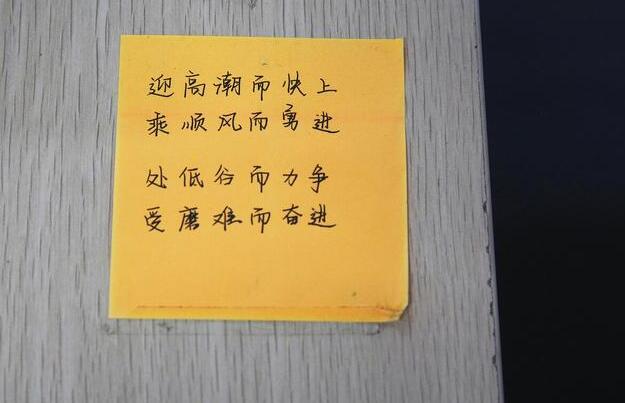 迎高潮而快上
乘顺风而勇进
处低谷而力争
受磨难而奋进